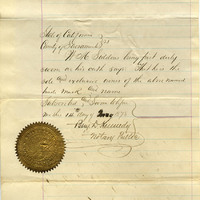 State of California
County of Sacramento } SS
W. H. Saddens being first duly
sworn on his oath says. That he is the
sole and exclusive owner of the above named
and mark and name
Subscribed & Sworn before
me this 14th day of May 1872
Perry H. Kennedy
Notary Public